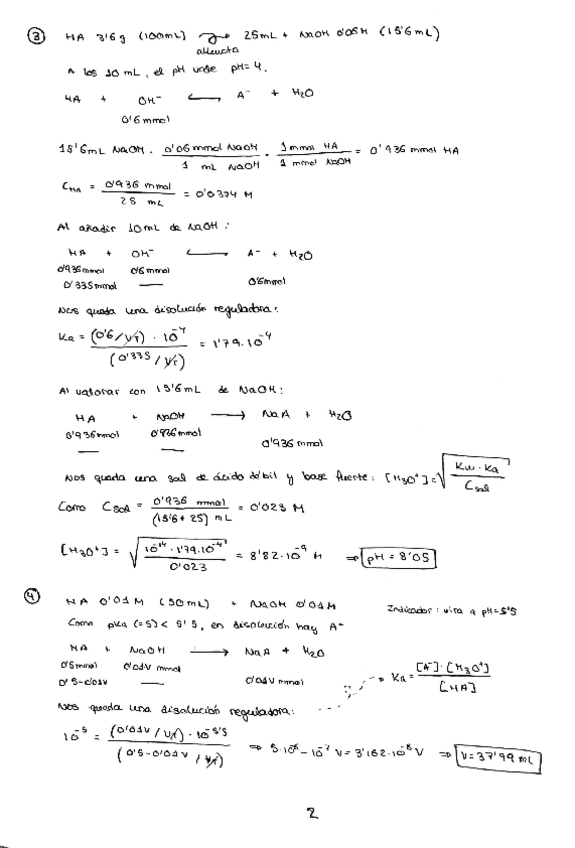 ③ HA 3'6g (100mL) → 25mL + NaOH 0'06M (15'6mL)
alícuota
A los 10mL, el pH vale pH=4.
HA + OH⁻ ⟵ A⁻ + H₂O
0'6mmol
15'6mL NaOH · 0'06mmol NaOH / 1 mL NaOH · 1mmol HA / 1 mmol NaOH = 0'936 mmol HA
C_HA = 0'936 mmol / 25 mL = 0'0374 M
Al añadir 10mL de NaOH:
HA + OH⁻ ⟵ A⁻ + H₂O
0'935mmol 0'6mmol
0'335mmol — 0'6mmol
Nos queda una disolución reguladora:
Ka = (0'6/V_T) · 10⁻⁴ / (0'335/V_T) = 1'79·10⁻⁴
Al valorar con 15'6mL de NaOH:
HA + NaOH ⟶ NaA + H₂O
0'936mmol 0'936mmol
— — 0'936 mmol
Nos queda una sal de ácido débil y base fuerte: [H₃O⁺]=√(Kw·Ka / C_sal)
Como C_sal = 0'936 mmol / (15'6+25) mL = 0'023 M
[H₃O⁺] = √(10⁻¹⁴·1'79·10⁻⁴ / 0'023) = 8'82·10⁻⁹ M ⇒ pH = 8'05
④ HA 0'01M (50mL) + NaOH 0'01M Indicador: vira a pH=5'5
Como pKa (=5) < 5'5, en disolución hay A⁻
HA + NaOH ⟶ NaA + H₂O
0'5mmol 0'01V mmol
0'5-0'01V — 0'01V mmol
Ka = [A⁻]·[H₃O⁺] / [HA]
Nos queda una disolución reguladora:
10⁻⁵ = (0'01V/V_T)·10⁻⁵'⁵ / (0'5-0'01V / V_T) ⇒ 5·10⁻⁶ - 10⁻⁷V = 3'162·10⁻⁸V ⇒ V=37'99 mL
2